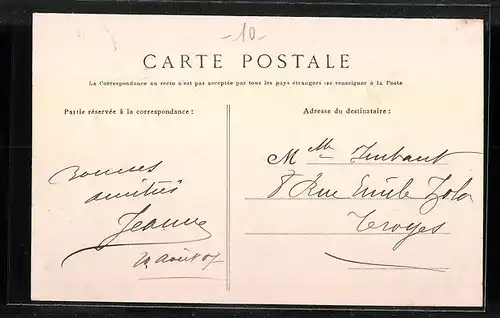 -10-
CARTE POSTALE
La Correspondance au recto n'est pas acceptée par tous les pays étrangers (se renseigner à la Poste
Partie réservée à la correspondance :
Adresse du destinataire :
Bonnes
amitiés
Jeanne
août 07
M Mlle Imbaut
8 Rue Emile Zola
Troyes